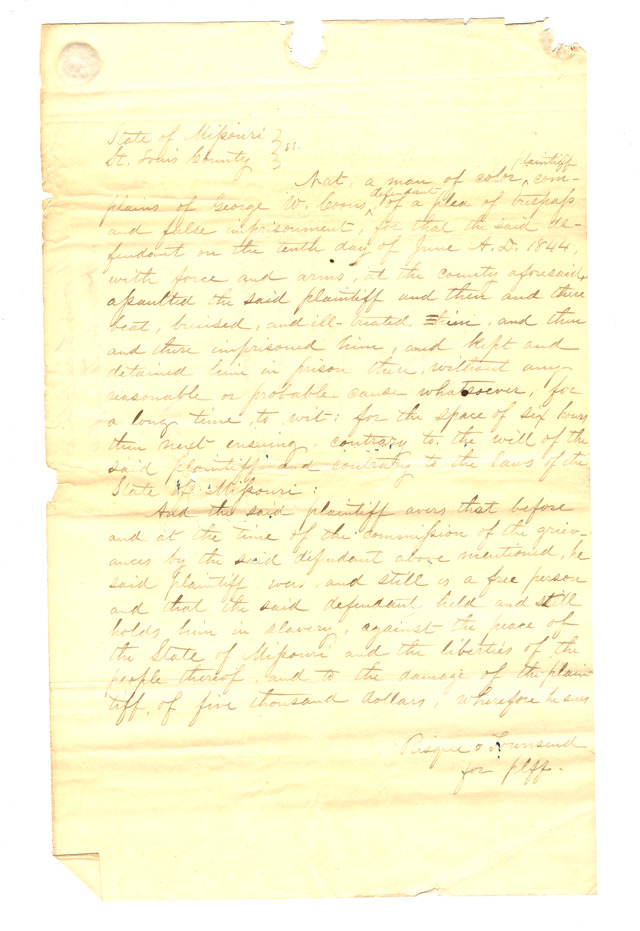 State of Missouri }
St. Louis County } ss.
Nat, a man of color, plaintiff com-
plains of George W. Coons, defendant of a plea of trespass
and false imprisonment, for that the said de-
fendant on the tenth day of June A. D. 1844,
with force and arms, at the county aforesaid,
assaulted the said plaintiff and then and there
beat, bruised, and ill-treated him, and then
and there imprisoned him, and kept and
detained him in prison there, without any
reasonable or probable cause whatsoever, for
a long time, to wit: for the space of six hours
then next ensuing contrary to the will of the
said plaintiff and contrary to the laws of the
State of Missouri:
And the said plaintiff avers that before
and at the time of the commission of the griev-
ances by the said defendant above mentioned, he
said plaintiff was, and still is a free person
and that the said defendant held and still
holds him in slavery, against the peace of
the State of Missouri and the liberties of the
people thereof, and to the damage of the plain
tiff, of five thousand dollars, wherefore he sues
Risque & Townsend
for plff.